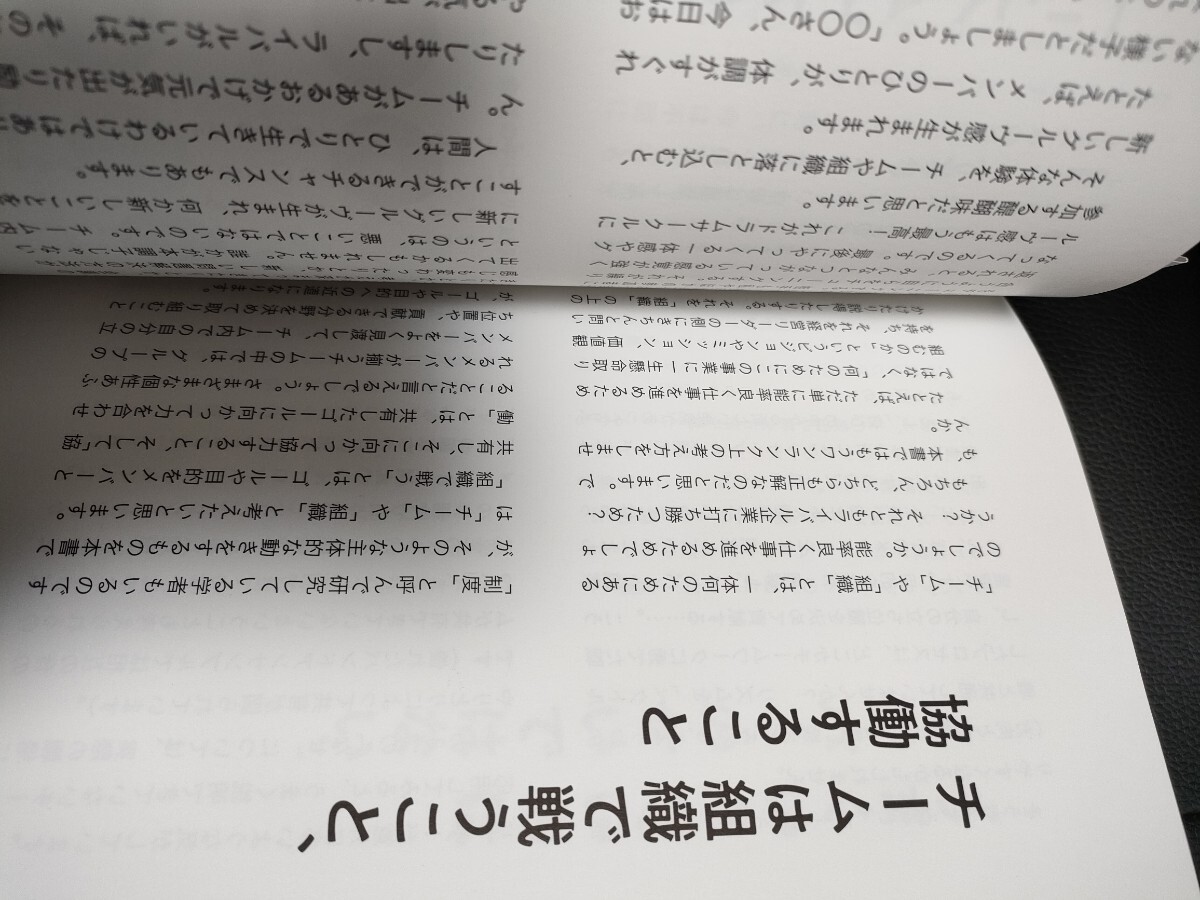 チームは組織で戦うこと、
協働すること
「チーム」や「組織」とは、一体何のためにある
のでしょうか。能率良く仕事を進めるためでしょ
うか？　それともライバル企業に打ち勝つため？
もちろん、どちらも正解なのだと思います。で
も、本書ではもうワンランク上の考え方をしませ
んか。
たとえば、ただ単に能率良く仕事を進めるため
ではなく、「何のためにこの事業に一生懸命取り
組むのか」というビジョンやミッション、価値観
を持ち、それを経営リーダーの側にきちんと問い
かけたり説得したりする。それを「組織」の上の
「制度」と呼んで研究している学者もいるのです
が、そのような主体的な動きをするものを本書で
は「チーム」や「組織」と考えたいと思います。
「組織で戦う」とは、ゴールや目的をメンバーと
共有し、そこに向かって協力すること、そして「協
働」とは、共有したゴールに向かって力を合わせ
ることだと言えるでしょう。さまざまな個性あふ
れるメンバーが揃うチームの中では、グループの
メンバーをよく見渡して、チーム内での自分の立
ち位置や、貢献できる分野を決めて取り組むこと
が、ゴールや目的への近道になります。
なってくるのです。最後にやってくる一体感やグ
ルーヴ感はもう最高！　これがドラムサークルに
参加する醍醐味だと思います。
そんな体験を、チームや組織に落とし込むと、
新しいグルーヴ感が生まれます。
たとえば、メンバーのひとりが、体調がすぐれ
ない様子だとしましょう。「〇〇さん、今日はお
出てくるかもしれません。誰かが本調子じゃない
というのは、悪いことではないのです。チーム内
に新しいグルーヴが生まれ、何か新しいことを
すことができるチャンスでもあります。
人間は、ひとりで生きているわけではあり
ん。チームがあるおかげで元気が出たり
たりしますし、ライバルがいれば、その